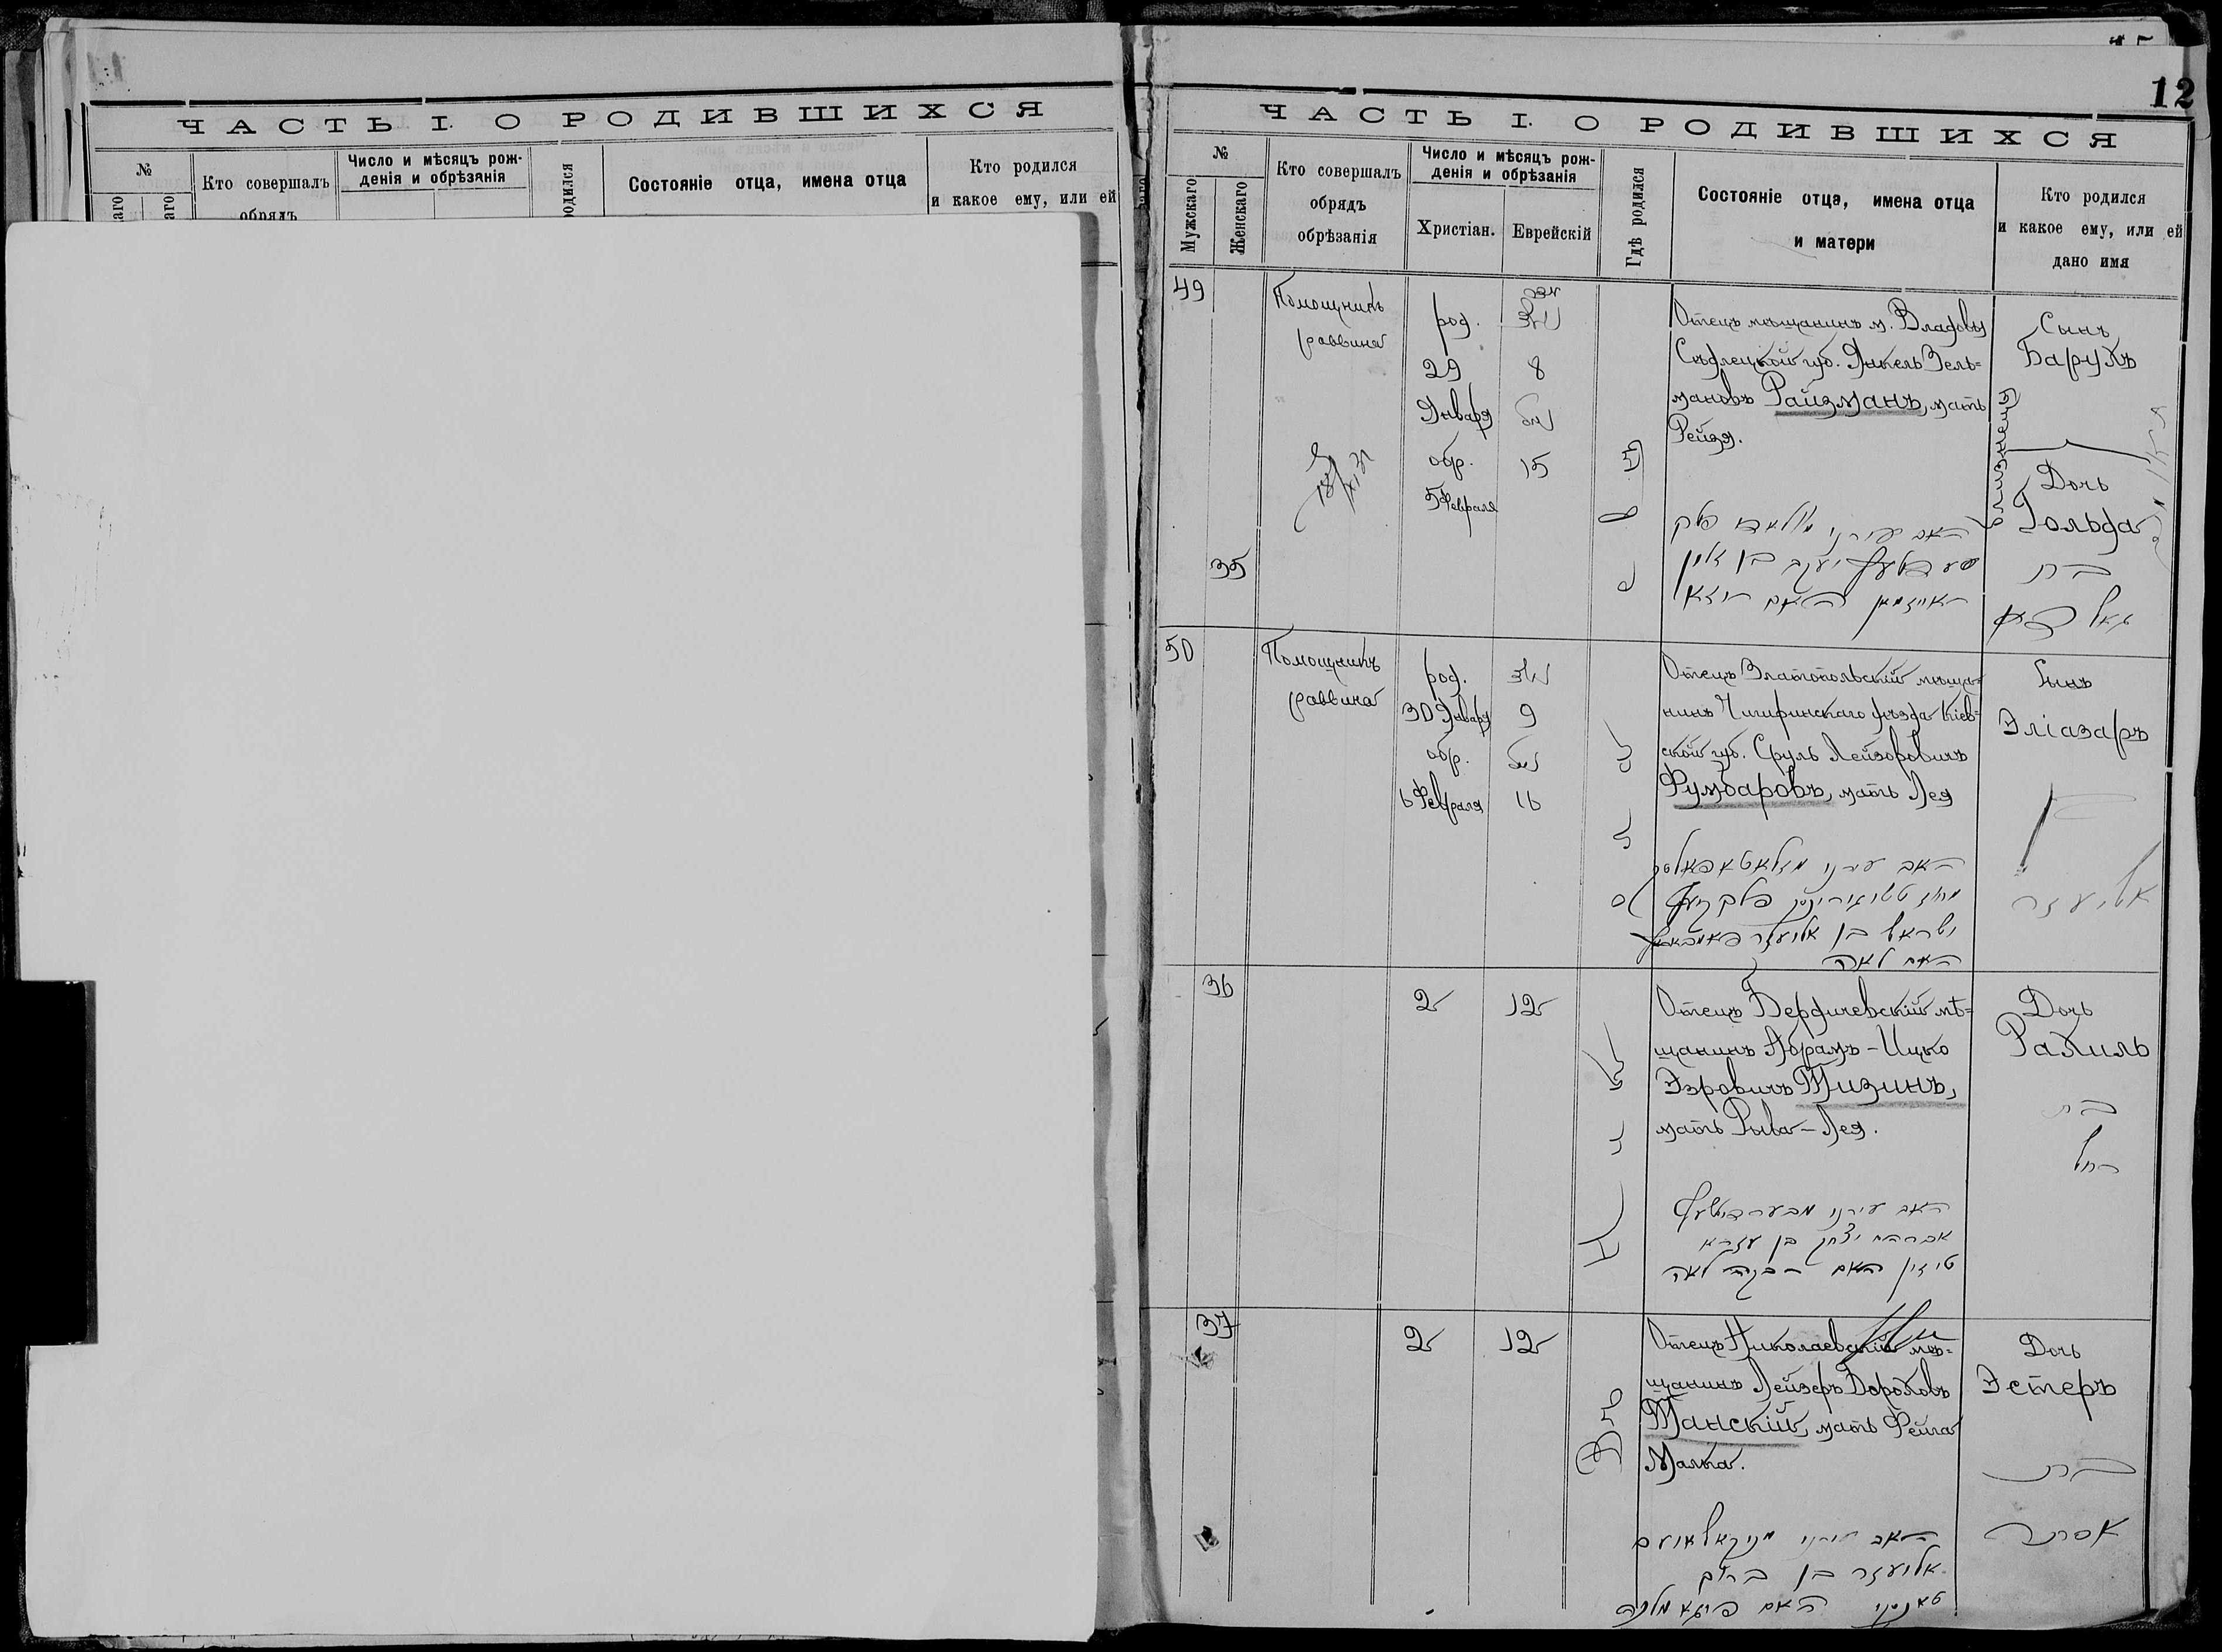 12
ЧАСТЬ I. О РОДИВШИХСЯ
№
Кто совершалъ
обрядъ
Число и мѣсяцъ рож-
денія и обрѣзанія
Состояніе отца, имена отца
Кто родился
и какое ему, или ей
ЧАСТЬ I. О РОДИВШИХСЯ
№
Мужскаго
Женскаго
Кто совершалъ
обрядъ
обрѣзанія
Число и мѣсяцъ рож-
денія и обрѣзанія
Христіан.
Еврейскій
Гдѣ родился
Состояніе отца, имена отца
и матери
Кто родился
и какое ему, или ей
дано имя
49
35
Помощникъ
раввина
род.
29
Января
обр.
5 Февраля
8
15
Отецъ мѣщанинъ м. Владовы
Сѣдлецкой губ. Янкель Зель=
мановъ Райзманъ, мать
Рейзя.
Сынъ
Барухъ
близнецы
Дочь
Гольда
בת
50
Помощникъ
раввина
род.
30 Января
обр.
6 Февраля
9
16
Отецъ Златопольскій мѣща=
нинъ Чигиринскаго уѣзда Кіев=
ской губ. Сруль Лейзоровичъ
Фумбаровъ, мать Лея
האם לאה
Сынъ
Эліазаръ
אליעזר
36
2
12
Отецъ Бердичевскій мѣ=
щанинъ Абрамъ-Ицко
Эзровичъ Тизинъ,
мать Рыва-Лея.
אברהם יצחק בן עזרא
טיזין האם רבקה לאה
Дочь
Рахиль
בת
רחל
37
2
12
Отецъ Николаевскій мѣ=
щанинъ Лейзеръ Дороховъ
Танскій, мать Фейга
Малка.
אליעזר בן ברוך
טאנסקי האם פייגא מלכה
Дочь
Эстеръ
בת
אסתר